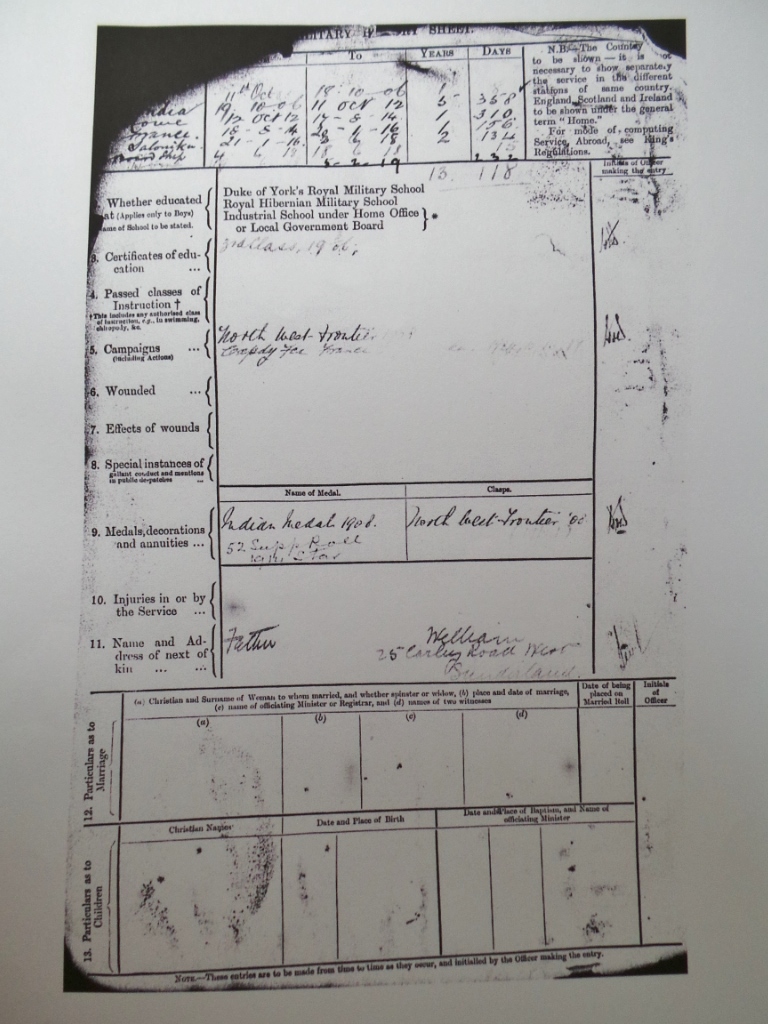 MILITARY H   RY SHEET.
To YEARS DAYS
N.B.—The Country
to be shown—it is not
necessary to show separately
the service in the different
stations of same country.
England, Scotland and Ireland
to be shown under the general
term "Home."
For mode of computing
Service, Abroad, see King's
Regulations.
11th Oct 18 10 06 1
India 19 10 06 11 Oct 12 5 358
Home 12 Oct 12 17 8 14 1 310
France 18 8 14 20 1 16 1 156
Salonika 21 1 16 3 6 18 2 134
Board Ship 4 6 18 18 6 18 15
3 2 19 232
13 118
Initials of Officer
making the entry
Whether educated
at (Applies only to Boys)
Name of School to be stated.
Duke of York's Royal Military School
Royal Hibernian Military School
Industrial School under Home Office
or Local Government Board
3. Certificates of edu-
cation ...
3rd Class, 1906,
4. Passed classes of
Instruction †
† This includes any authorised class
of instruction, e.g., in swimming,
chiropody, &c.
5. Campaigns ...
(including Actions)
North West Frontier
France
6. Wounded ...
7. Effects of wounds
8. Special instances of
gallant conduct and mentions
in public despatches ...
Name of Medal. Clasps.
9. Medals, decorations
and annuities ...
Indian Medal 1908. North West Frontier '08
52 Supp Roll
1914 Star
10. Injuries in or by
the Service ...
11. Name and Ad-
dress of next of
kin ... ...
Father William
25 Corley Road West
Sunderland.
12. Particulars as to
Marriage
(a) Christian and Surname of Woman to whom married, and whether spinster or widow, (b) place and date of marriage,
(c) name of officiating Minister or Registrar, and (d) names of two witnesses
Date of being
placed on
Married Roll
Initials
of
Officer
(a) (b) (c) (d)
13. Particulars as to
Children
Christian Names
Date and Place of Birth
Date and Place of Baptism, and Name of
officiating Minister
NOTE.—These entries are to be made from time to time as they occur, and initialled by the Officer making the entry.